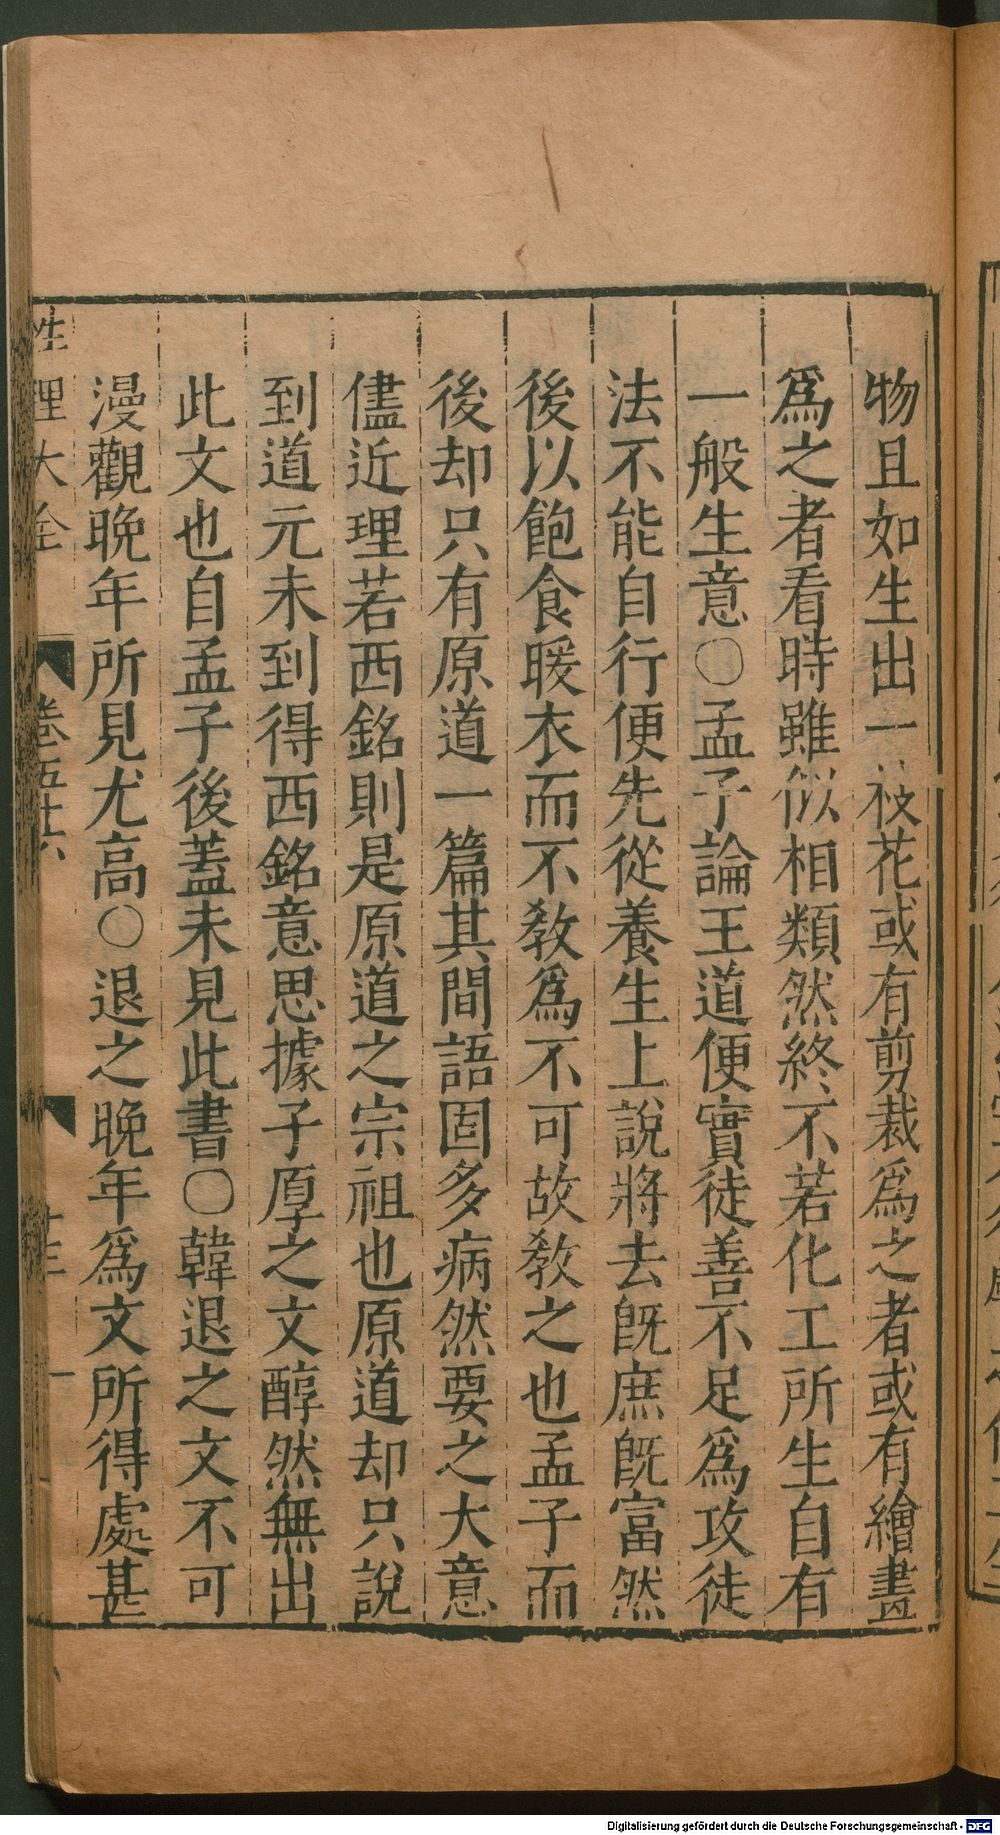 物且如生出一枝花或有剪裁爲之者或有繪畫
爲之者看時雖似相類然終不若化工所生自有
一般生意〇孟子論王道便實徒善不足爲攻徒
法不能自行便先從養生上說將去旣庶旣富然
後以飽食暖衣而不教爲不可故教之也孟子而
後却只有原道一篇其間語固多病然要之大意
儘近理若西銘則是原道之宗祖也原道却只說
到道元未到得西銘意思據子厚之文醇然無出
此文也自孟子後蓋未見此書〇韓退之文不可
漫觀晚年所見尤高〇退之晚年爲文所得處甚
性理大全 卷五十六
Digitalisierung gefördert durch die Deutsche Forschungsgemeinschaft - DFG